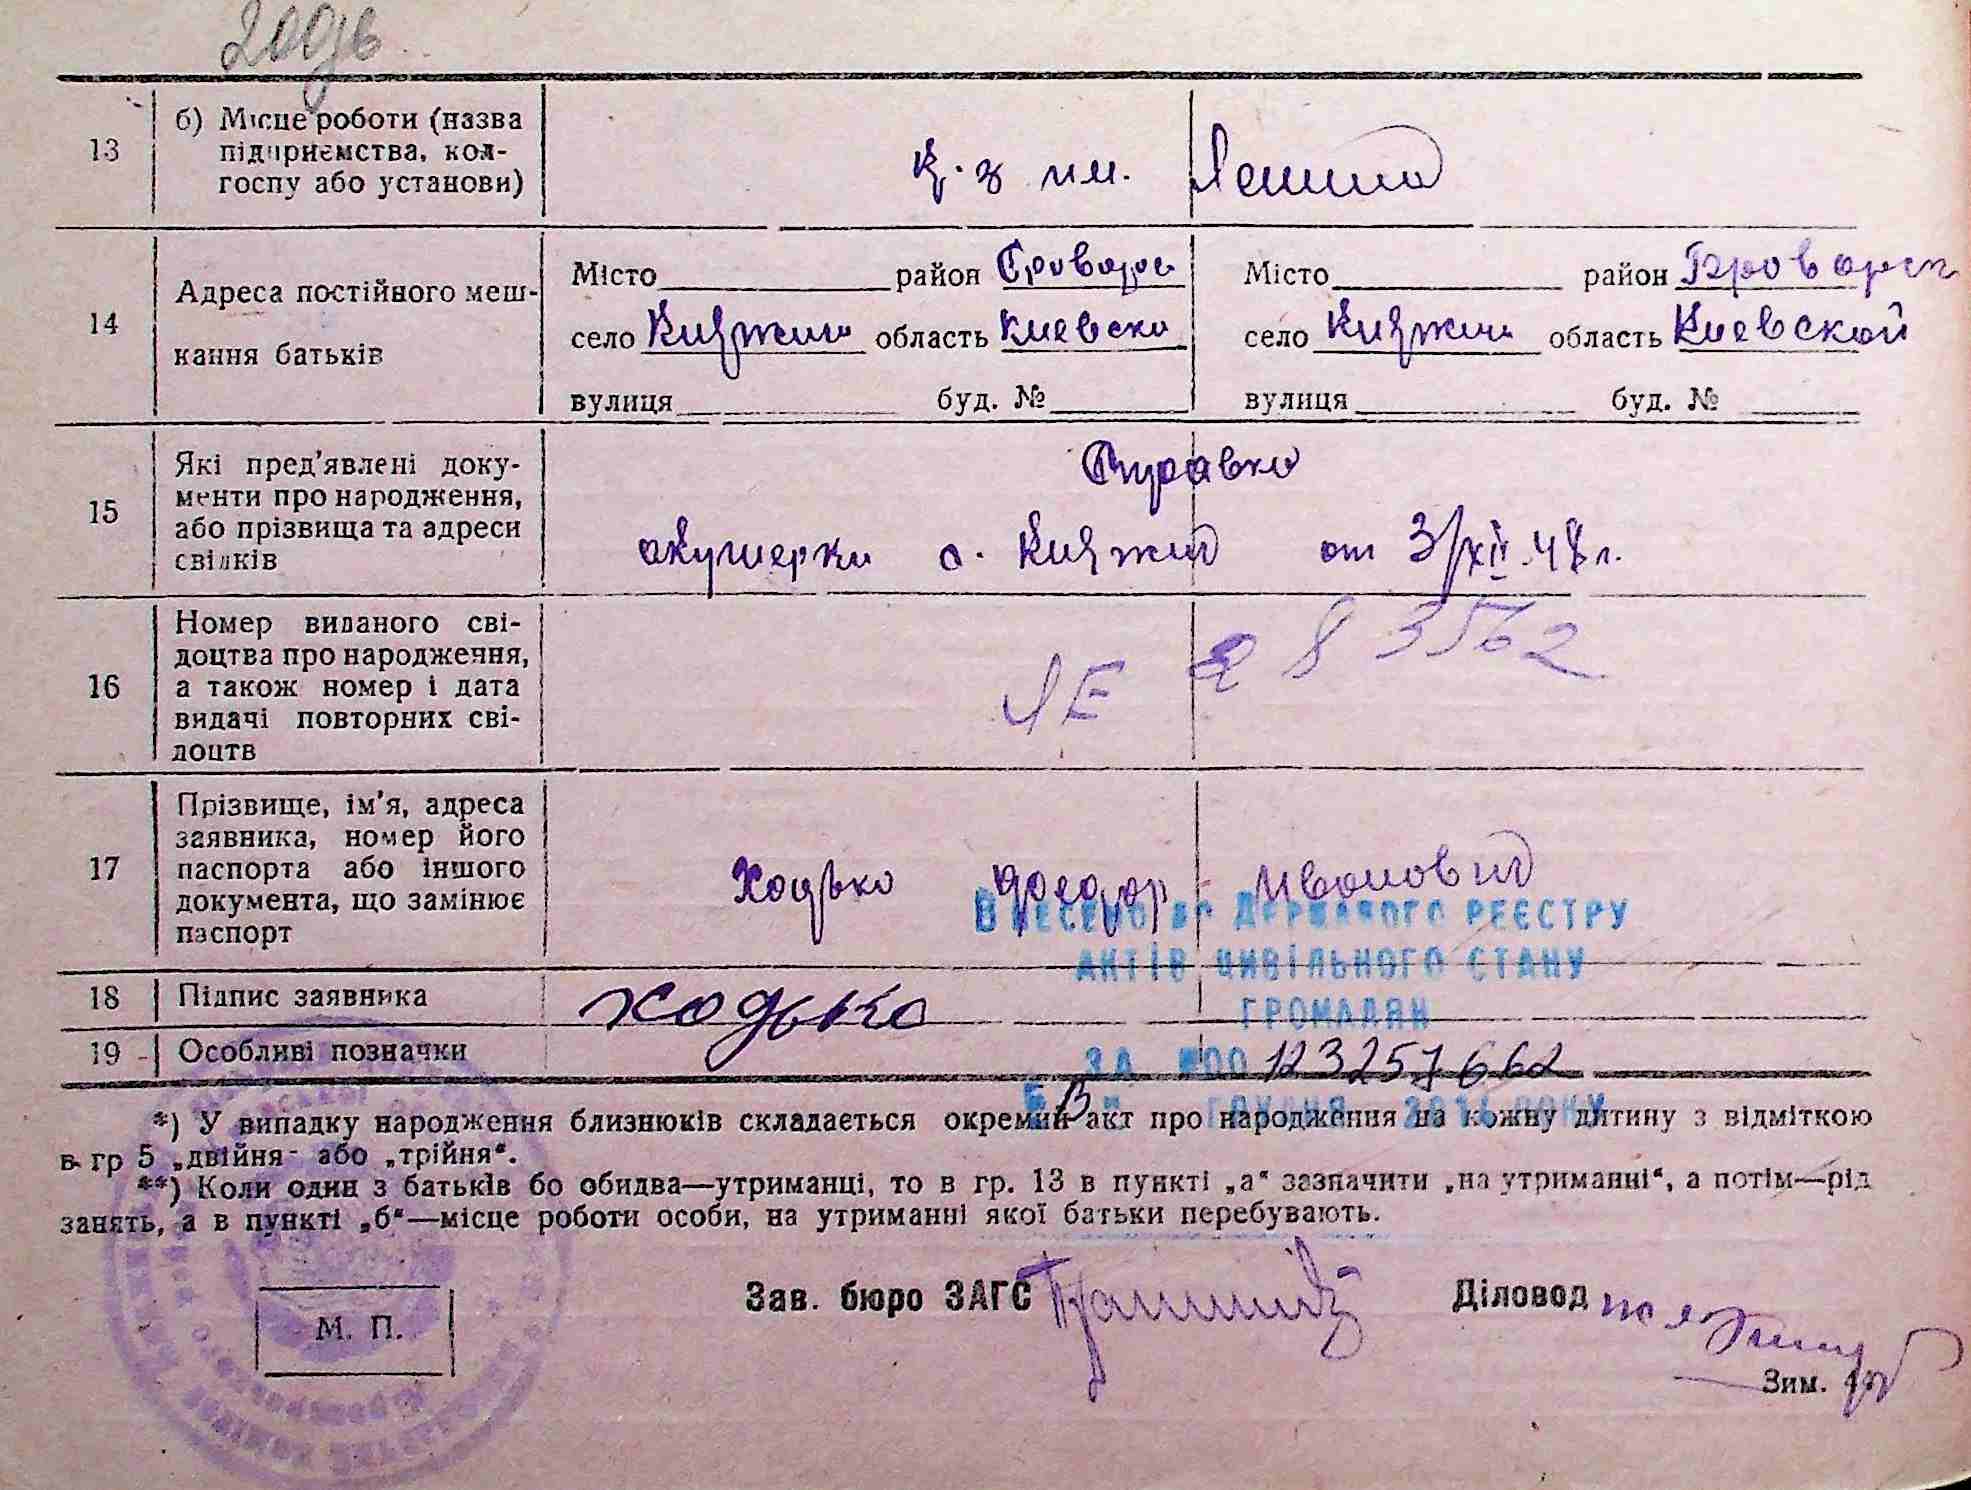 13
б) Місце роботи (назва
підприємства, кол-
госпу або установи)
к-з им. Ленина
14
Адреса постійного меш-
кання батьків
Місто район Броварс
село Княжичи область Киевско
вулиця буд. №
Місто район Броварск
село Княжичи область Киевской
вулиця буд. №
15
Які пред'явлені доку-
менти про народження,
або прізвища та адреси
свідків
Справка
акушерки с. Княжич от 3/XII.48 г.
16
Номер виданого сві-
доцтва про народження,
а також номер і дата
видачі повторних сві-
доцтв
ЯЕ 283562
17
Прізвище, ім'я, адреса
заявника, номер його
паспорта або іншого
документа, що замінює
паспорт
Ходько Федор Иванович
Внесено до Державного реєстру
актів цивільного стану
громадян
за №00123257662
грудня
18
Підпис заявника
Ходько
19
Особливі позначки
*) У випадку народження близнюків складається окремий акт про народження на кожну дитину з відміткою
в гр 5 „двійня" або „трійня".
**) Коли один з батьків бо обидва—утриманці, то в гр. 13 в пункті „а" зазначити „на утриманні", а потім—рід
занять, а в пункті „б"—місце роботи особи, на утриманні якої батьки перебувають.
Зав. бюро ЗАГС
Діловод
М. П.
Зим.